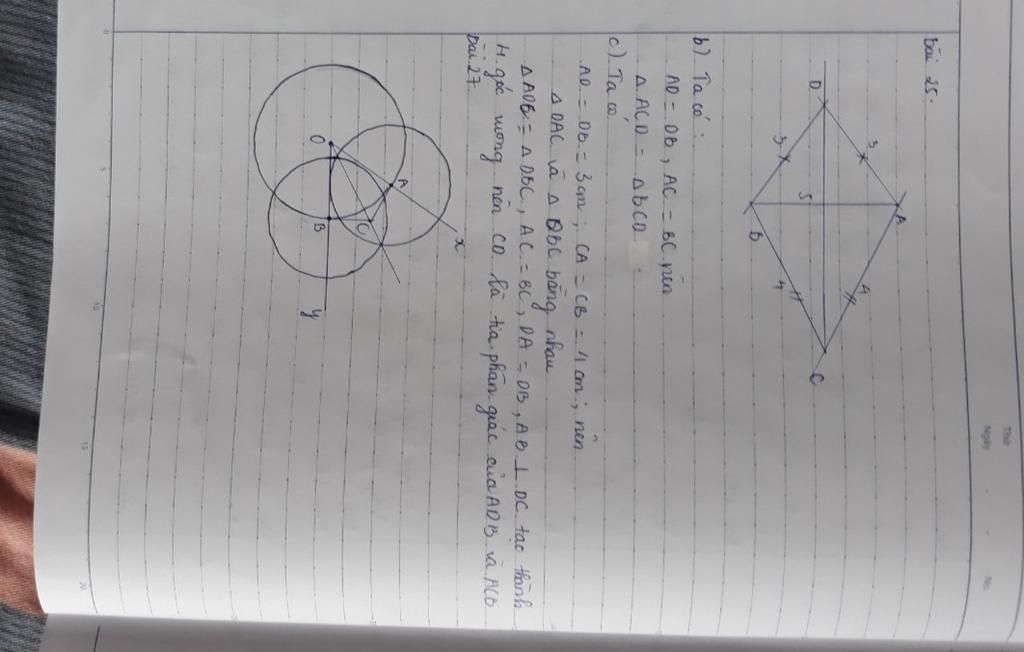 Thứ
Ngày
No.
Bài 25.
A
3
4
D
5
C
3
4
B
b) Ta có :
AD = DB, AC = BC nên
Δ ACD = Δ BCD
c) Ta có
AD = DB = 3cm ; CA = CB = 4 cm ; nên
Δ DAC và Δ DBC bằng nhau
Δ ADB = Δ DBC, AC = BC, DA = DB, AB ⊥ DC tạo thành
4. góc vuông nên CD là tia phân giác của ADB và ACB
Bài 27.
x
A
O
C
B
y
0
5
10
15
20